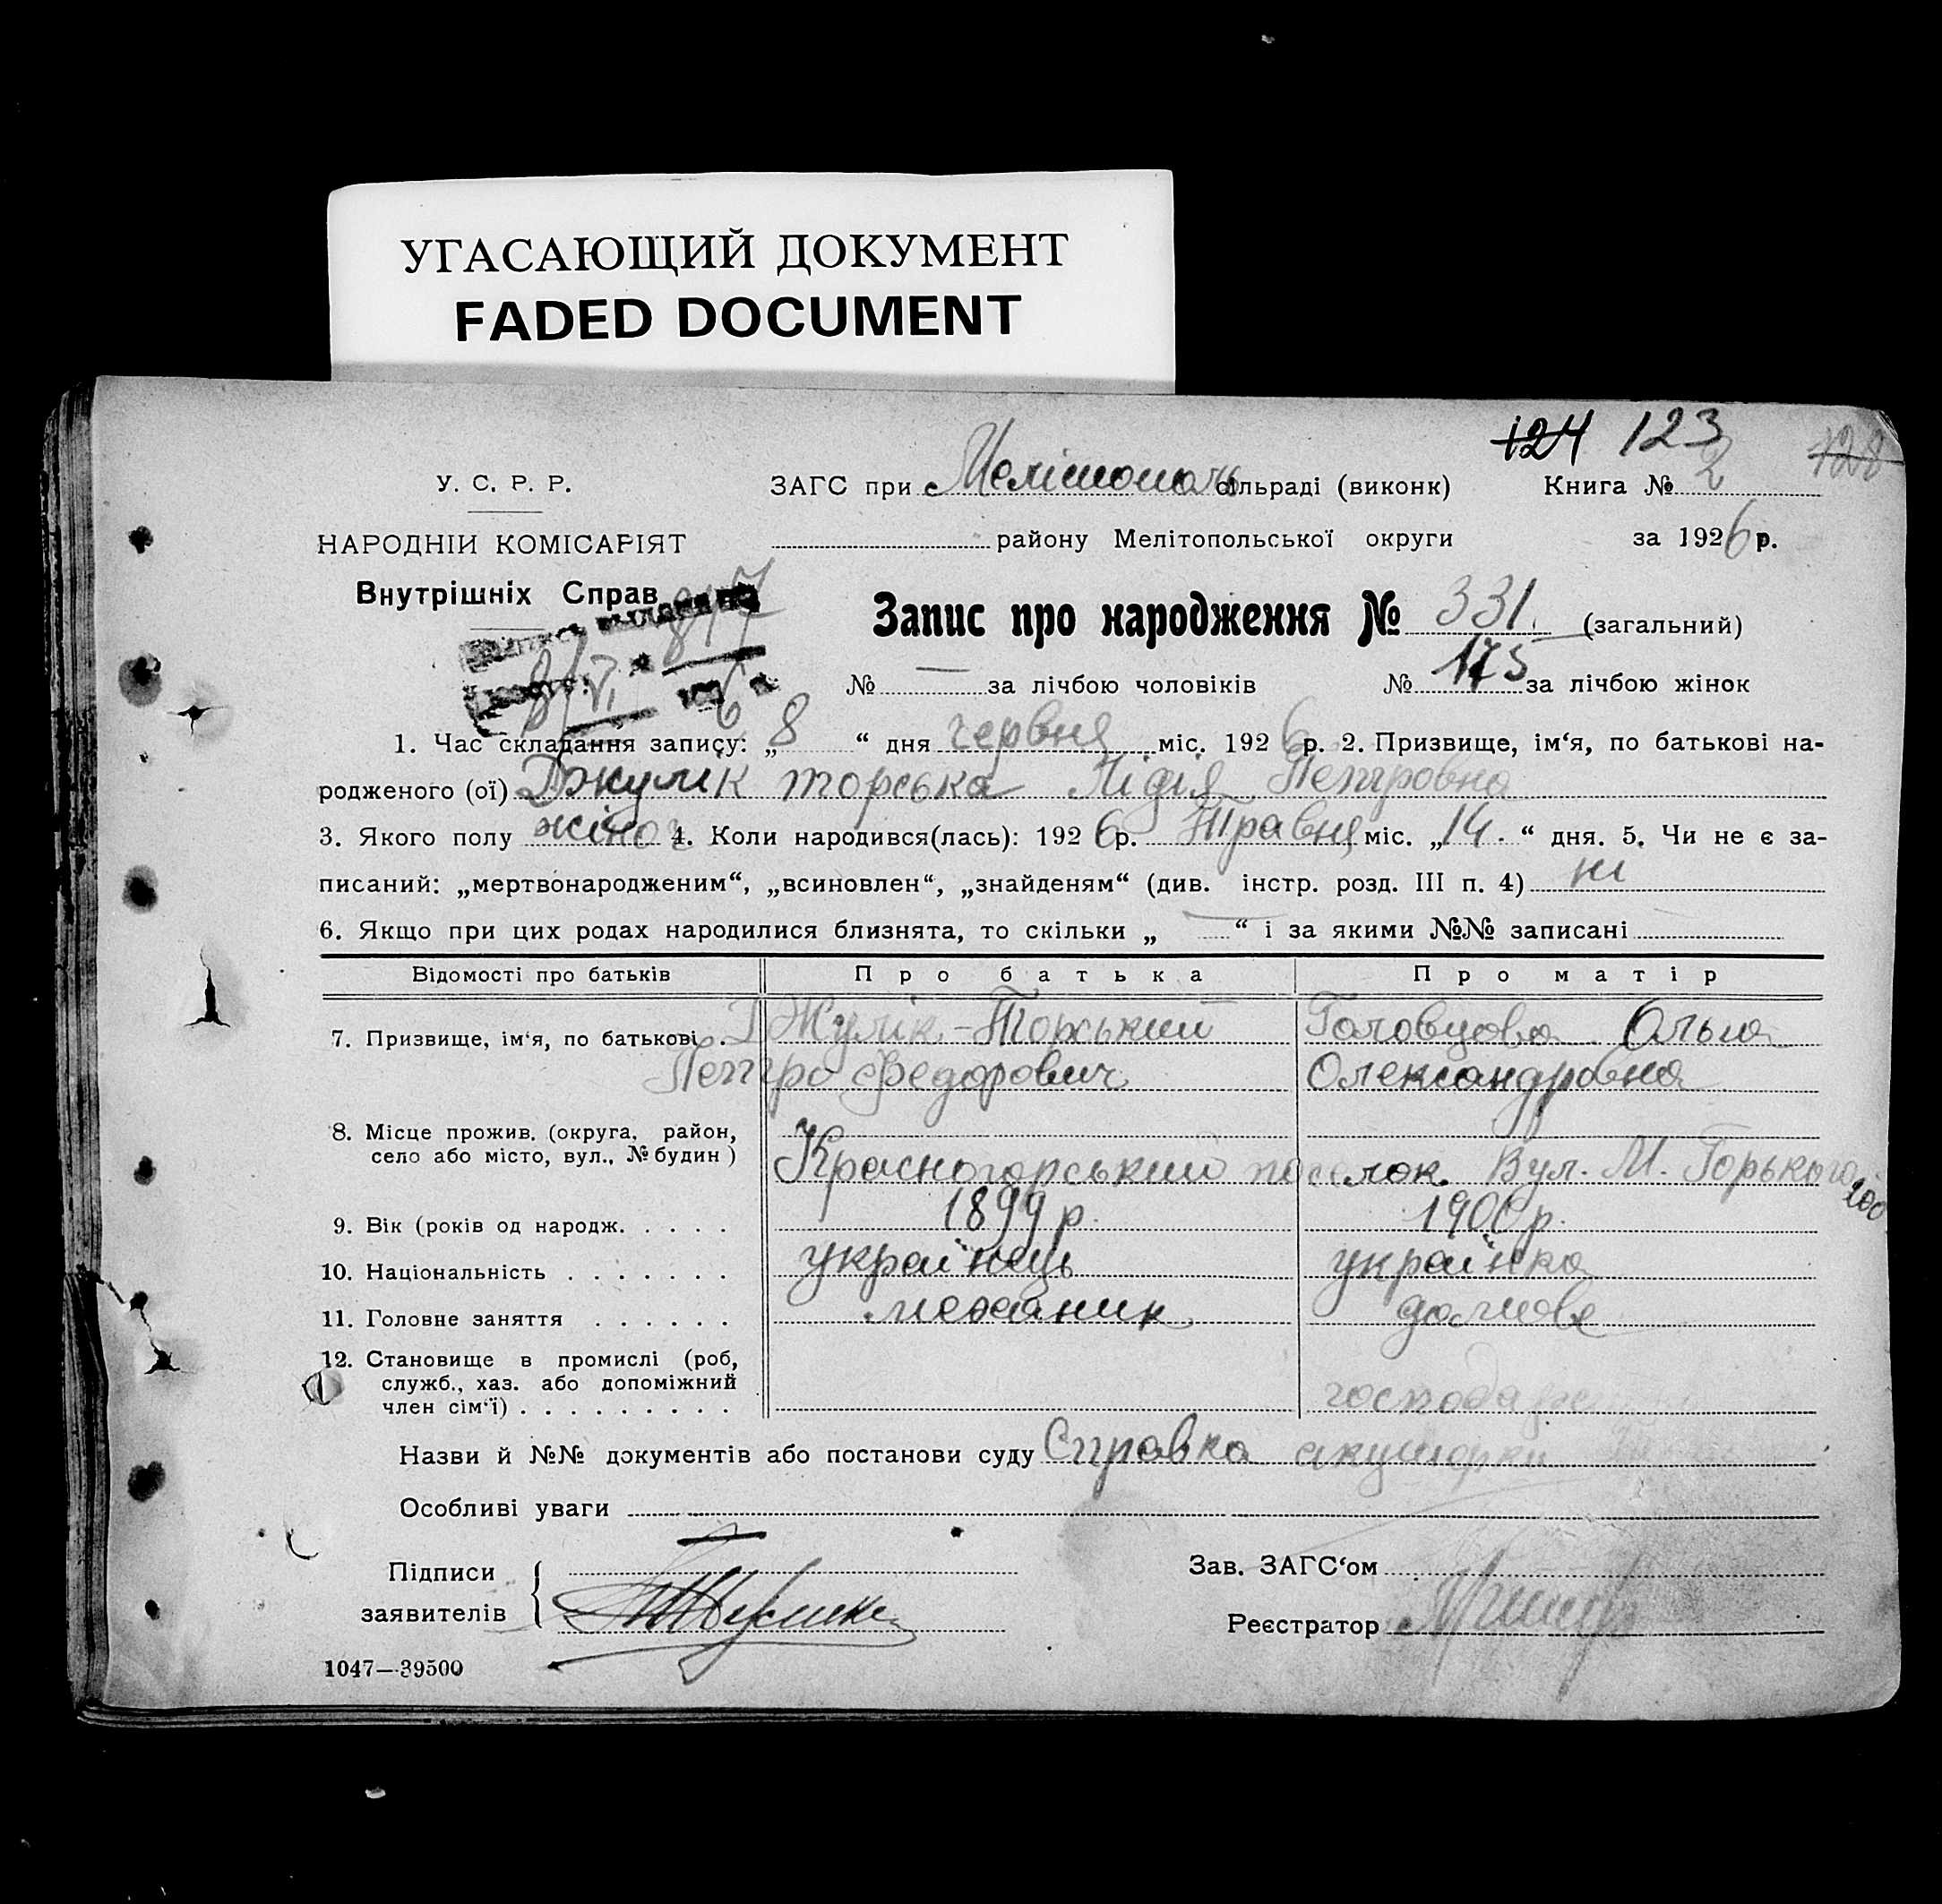 УГАСАЮЩИЙ ДОКУМЕНТ
FADED DOCUMENT
124 123 128
У. С. Р. Р.
ЗАГС при Мелітополь сільраді (виконк) Книга № 2
НАРОДНІИ КОМІСАРІЯТ
району Мелітопольської округи за 1926 р.
Внутрішніх Справ
817
Запис про народження № 331. (загальний)
8/VI 1926 р.
№ — за лічбою чоловіків № 175 за лічбою жінок
1. Час складання запису: „8“ дня червня міс. 1926 р. 2. Призвище, ім‘я, по батькові на-
родженого (ої) Джулік торська Лідія Петровна
3. Якого полу жіноч 4. Коли народився(лась): 1926 р. Травня міс. „14.“ дня. 5. Чи не є за-
писаний: „мертвонародженим“, „всиновлен“, „знайденям“ (див. інстр. розд. III п. 4) ні
6. Якщо при цих родах народилися близнята, то скільки „—“ і за якими №№ записані
Відомості про батьків Про батька Про матір
7. Призвище, ім‘я, по батькові . Джулік-Торський Головцова Ольга
Петро Федорович Олександровна
8. Місце прожив. (округа, район,
село або місто, вул., № будин)
Красногорський поселок. Вул. М. Горького 100
9. Вік (років од народж. . . . . 1899 р. 1900 р.
10. Національність . . . . . . . українець українка
11. Головне заняття . . . . . . механик домове
12. Становище в промислі (роб,
служб., хаз. або допоміжний
член сім‘ї) . . . . . . . . . господарс
Назви й №№ документів або постанови суду Справка акушорки
Особливі уваги —
Підписи
заявителів
Зав. ЗАГС‘ом
Реєстратор
1047—39500